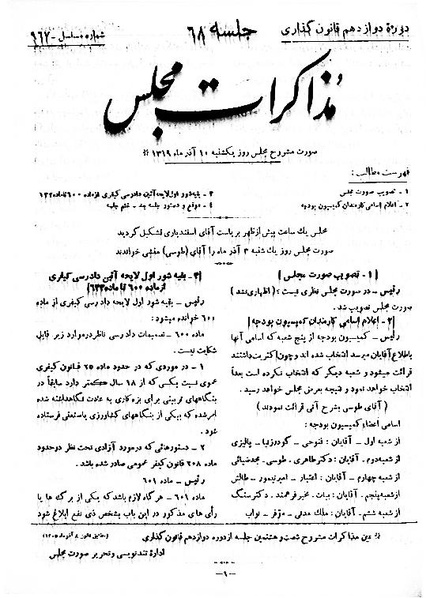 دورهٔ دوازدهم قانون گذاری
جلسه ۶۸
شماره مسلسل - ۹۶۷
مذاکرات مجلس
صورت مشروح مجلس روز یکشنبه ۱۰ آذر ماه ۱۳۱۹
فهرست مطالب:
۱ - تصویب صورت مجلس
۲ - اعلام اسامی کارمندان کمیسیون بودجه
۳ - بقیه شور اول لایحه آئین دادرسی کیفری از ماده ۶۰۰ تا ماده
۴ - موقع و دستور جلسه بعد - ختم جلسه
مجلس یک ساعت پیش از ظهر بریاست آقای اسفندیاری تشکیل گردید
صورت مجلس روز یک شنبه ۳ آذر ماه را آقای (طوسی) منشی خواندند
[۱ - تصویب صورت مجلس]
رئیس - در صورت مجلس نظری نیست؟ (اظهاری نشد)
صورت مجلس تصویب شد.
[۲ - اعلام اسامی کارمندان کمیسیون بودجه]
رئیس - کمیسیون بودجه از پنج شعبه که اسامی آنها
باطلاع آقایان میرسد انتخاب شده اند و چون اکثریت داشتند
قرائت میشود و شعبه دیگر که انتخاب نکرده است بعداً
انتخاب خواهد نمود و نتیجه بعرض مجلس خواهد رسید.
(آقای طوسی بشرح آتی قرائت نمودند)
اسامی اعضاء کمیسیون بودجه:
از شعبه اول - آقایان: فتوحی - گودرزنیا - پالیزی
از شعبه دوم - آقایان: دکتر طاهری - طوسی - مجد ضیائی
از شعبه چهارم - آقایان: اعتبار - امیر تیمور - طالش
از شعبه پنجم - آقایان: بیات - مخبر فرهمند - دکتر سنگ
از شعبه ششم - آقایان: ملک مدنی - مؤقر - نواب
[۳ - بقیه شور اول لایحه آئین دادرسی کیفری
از ماده ۶۰۰ تا ماده ۶۳۳]
رئیس - بقیه شور اول لایحه دادرسی کیفری از ماده
۶۰۰ خوانده میشود:
ماده ۶۰۰ - تصمیمات دادرسی ناظر در موارد زیر قابل
شکایت نیست.
۱ - در موردی که در حدود ماده ۲۵ قانون کیفری
عمومی نسبت بیکسی که از ۱۸ سال کمتر دارد سابقاً در
بنگاههای تربیتی برای بزه کاری به عادت نگاهداشته شده
امر شده که بیکی از بنگاههای کشاورزی یا صنعتی فرستاده
شود.
۲ - دستورهائی که در مورد آزادی تحت نظر در حدود
ماده ۲۰۸ قانون کیفر عمومی صادر شده باشد.
رئیس - ماده ۶۰۱
ماده ۶۰۱ - هر گاه لازم باشد که یکی از برگ ها یا
رأی های مذکور در این باب بشخص ذی نفع ابلاغ شود
عین مذاکرات مشروح شصت و هشتمین جلسه از دوره دوازدهم قانون گذاری
اداره تندنویسی و تحریر صورت مجلس
-۱-